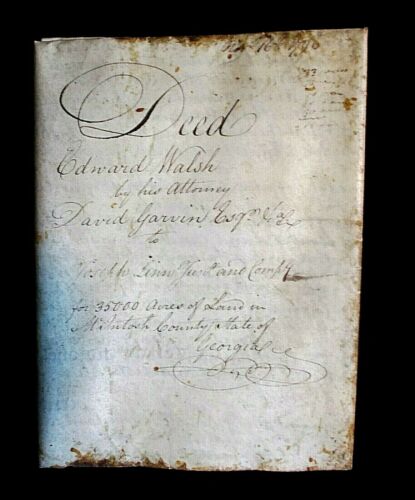 Deed
Edward Walsh
by his Attorney
David Garvin Esqr &c
to
Joseph Linn Junr and Compy
for 35000 Acres of Land in
McIntosh County State of
Georgia